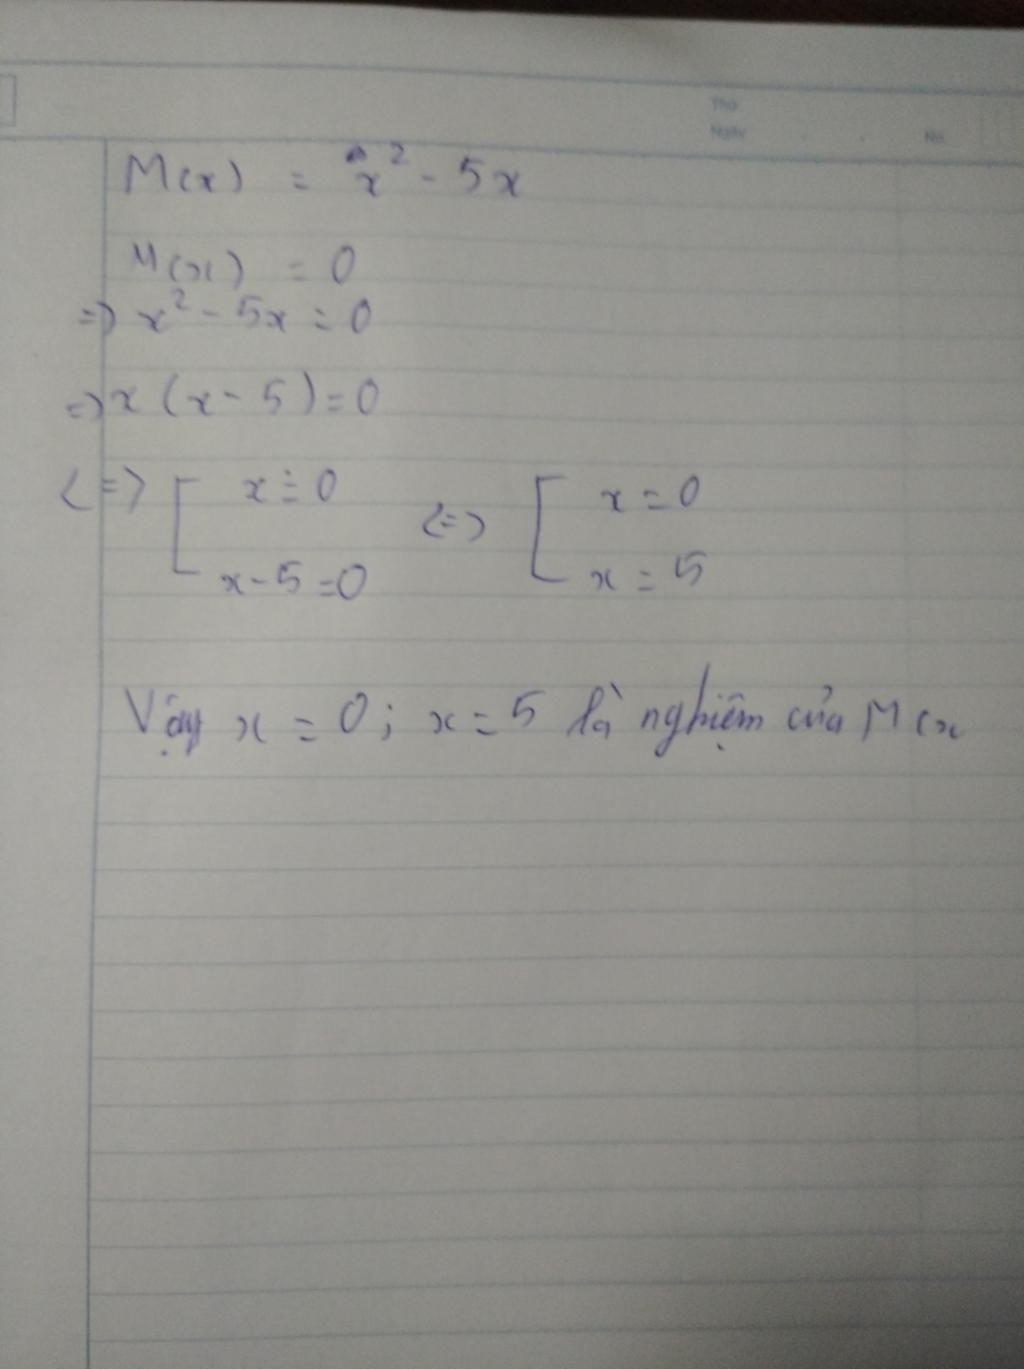 Thứ
Ngày . . No.
M(x) = x² - 5x
M(x) = 0
=> x² - 5x = 0
=> x (x - 5) = 0
<=> [ x = 0 <=> [ x = 0
x - 5 = 0 x = 5
Vậy x = 0 ; x = 5 là nghiệm của M(x